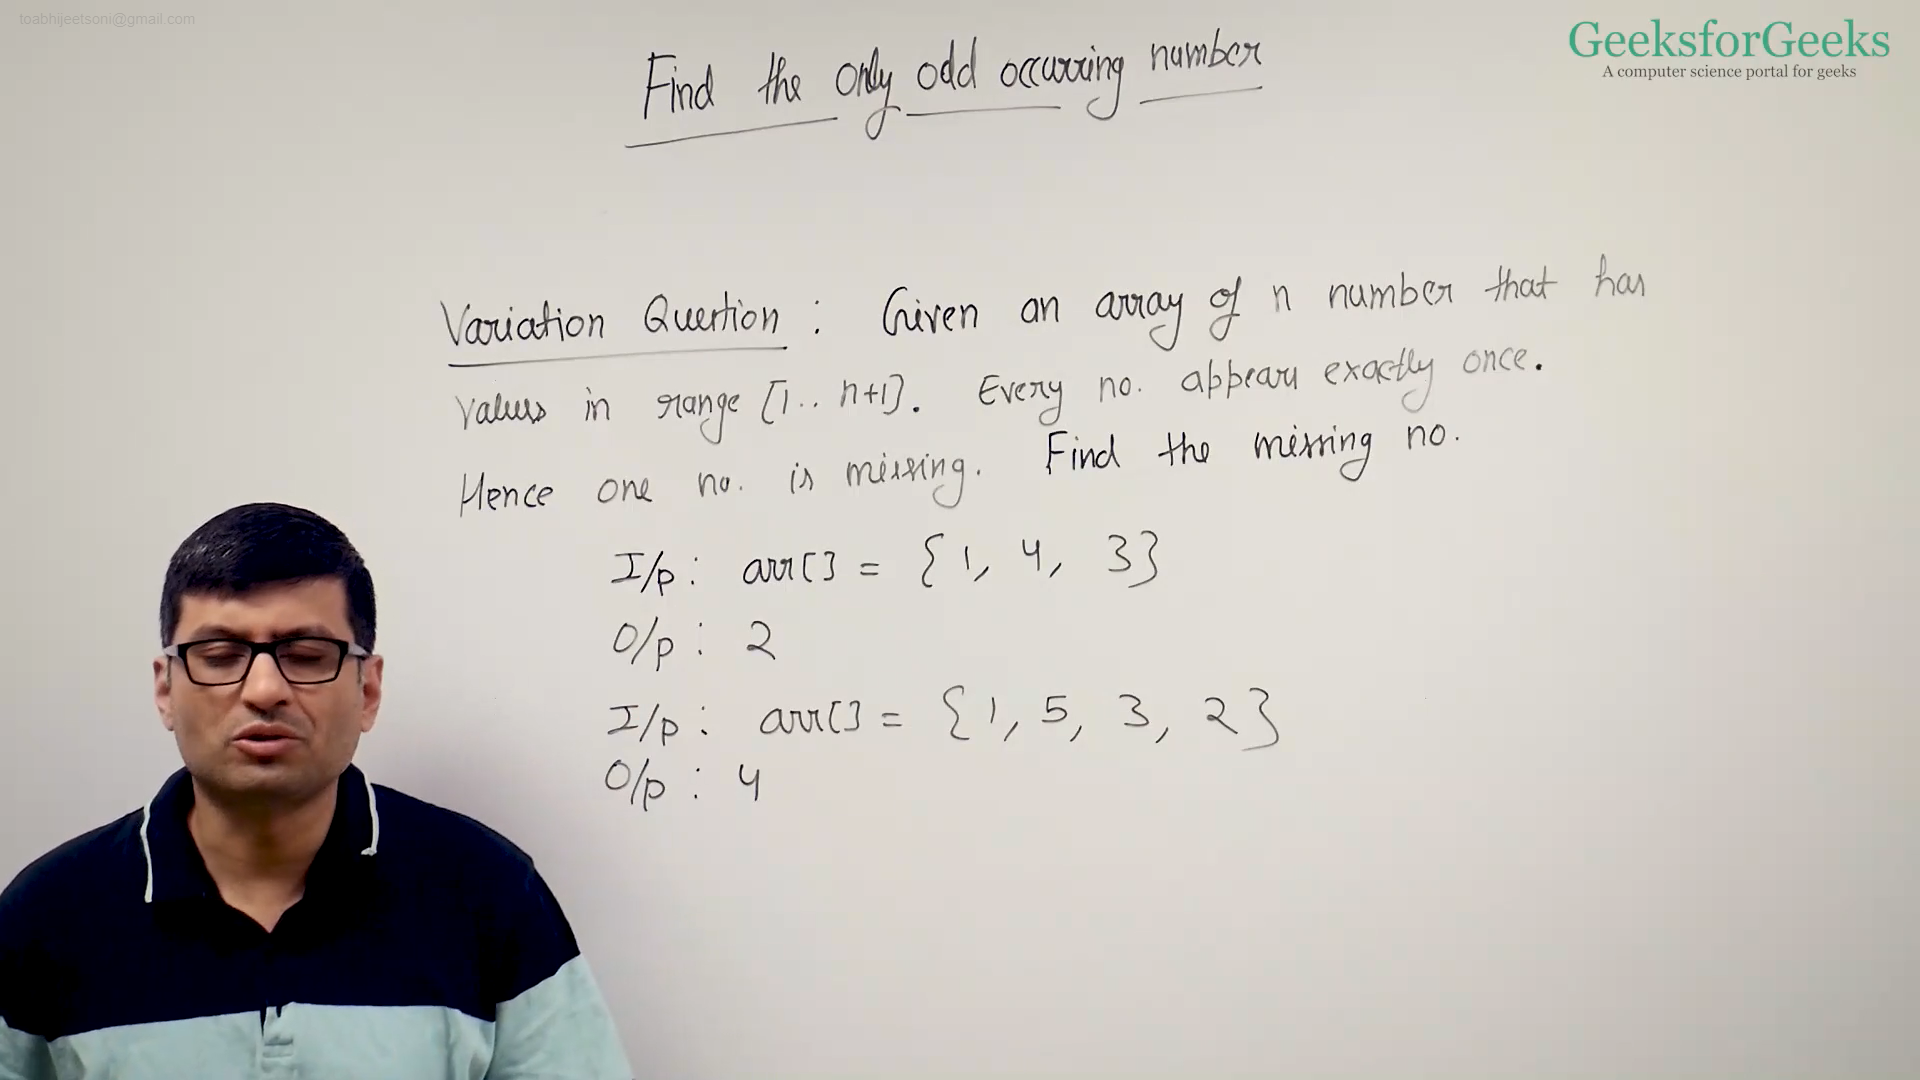 toabhijeetsoni@gmail.com
GeeksforGeeks
A computer science portal for geeks
Find the only odd occurring number
Variation Question : Given an array of n number that has
values in range [1.. n+1]. Every no. appears exactly once.
Hence one no. is missing. Find the missing no.
I/p : arr[] = {1, 4, 3}
O/p : 2
I/p : arr[] = {1, 5, 3, 2}
O/p : 4